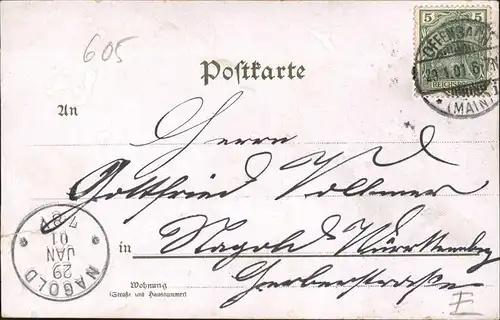 605
5 5
OFFENBACH
29.1.01.6-7N
* (MAIN)
Postkarte
An
Herrn
Gottfried Vollmer
in Nagold Württemberg
Gerberstrasse
Wohnung
(Straße und Hausnummer)
NAGOLD
29
JAN
01
7-8V
E